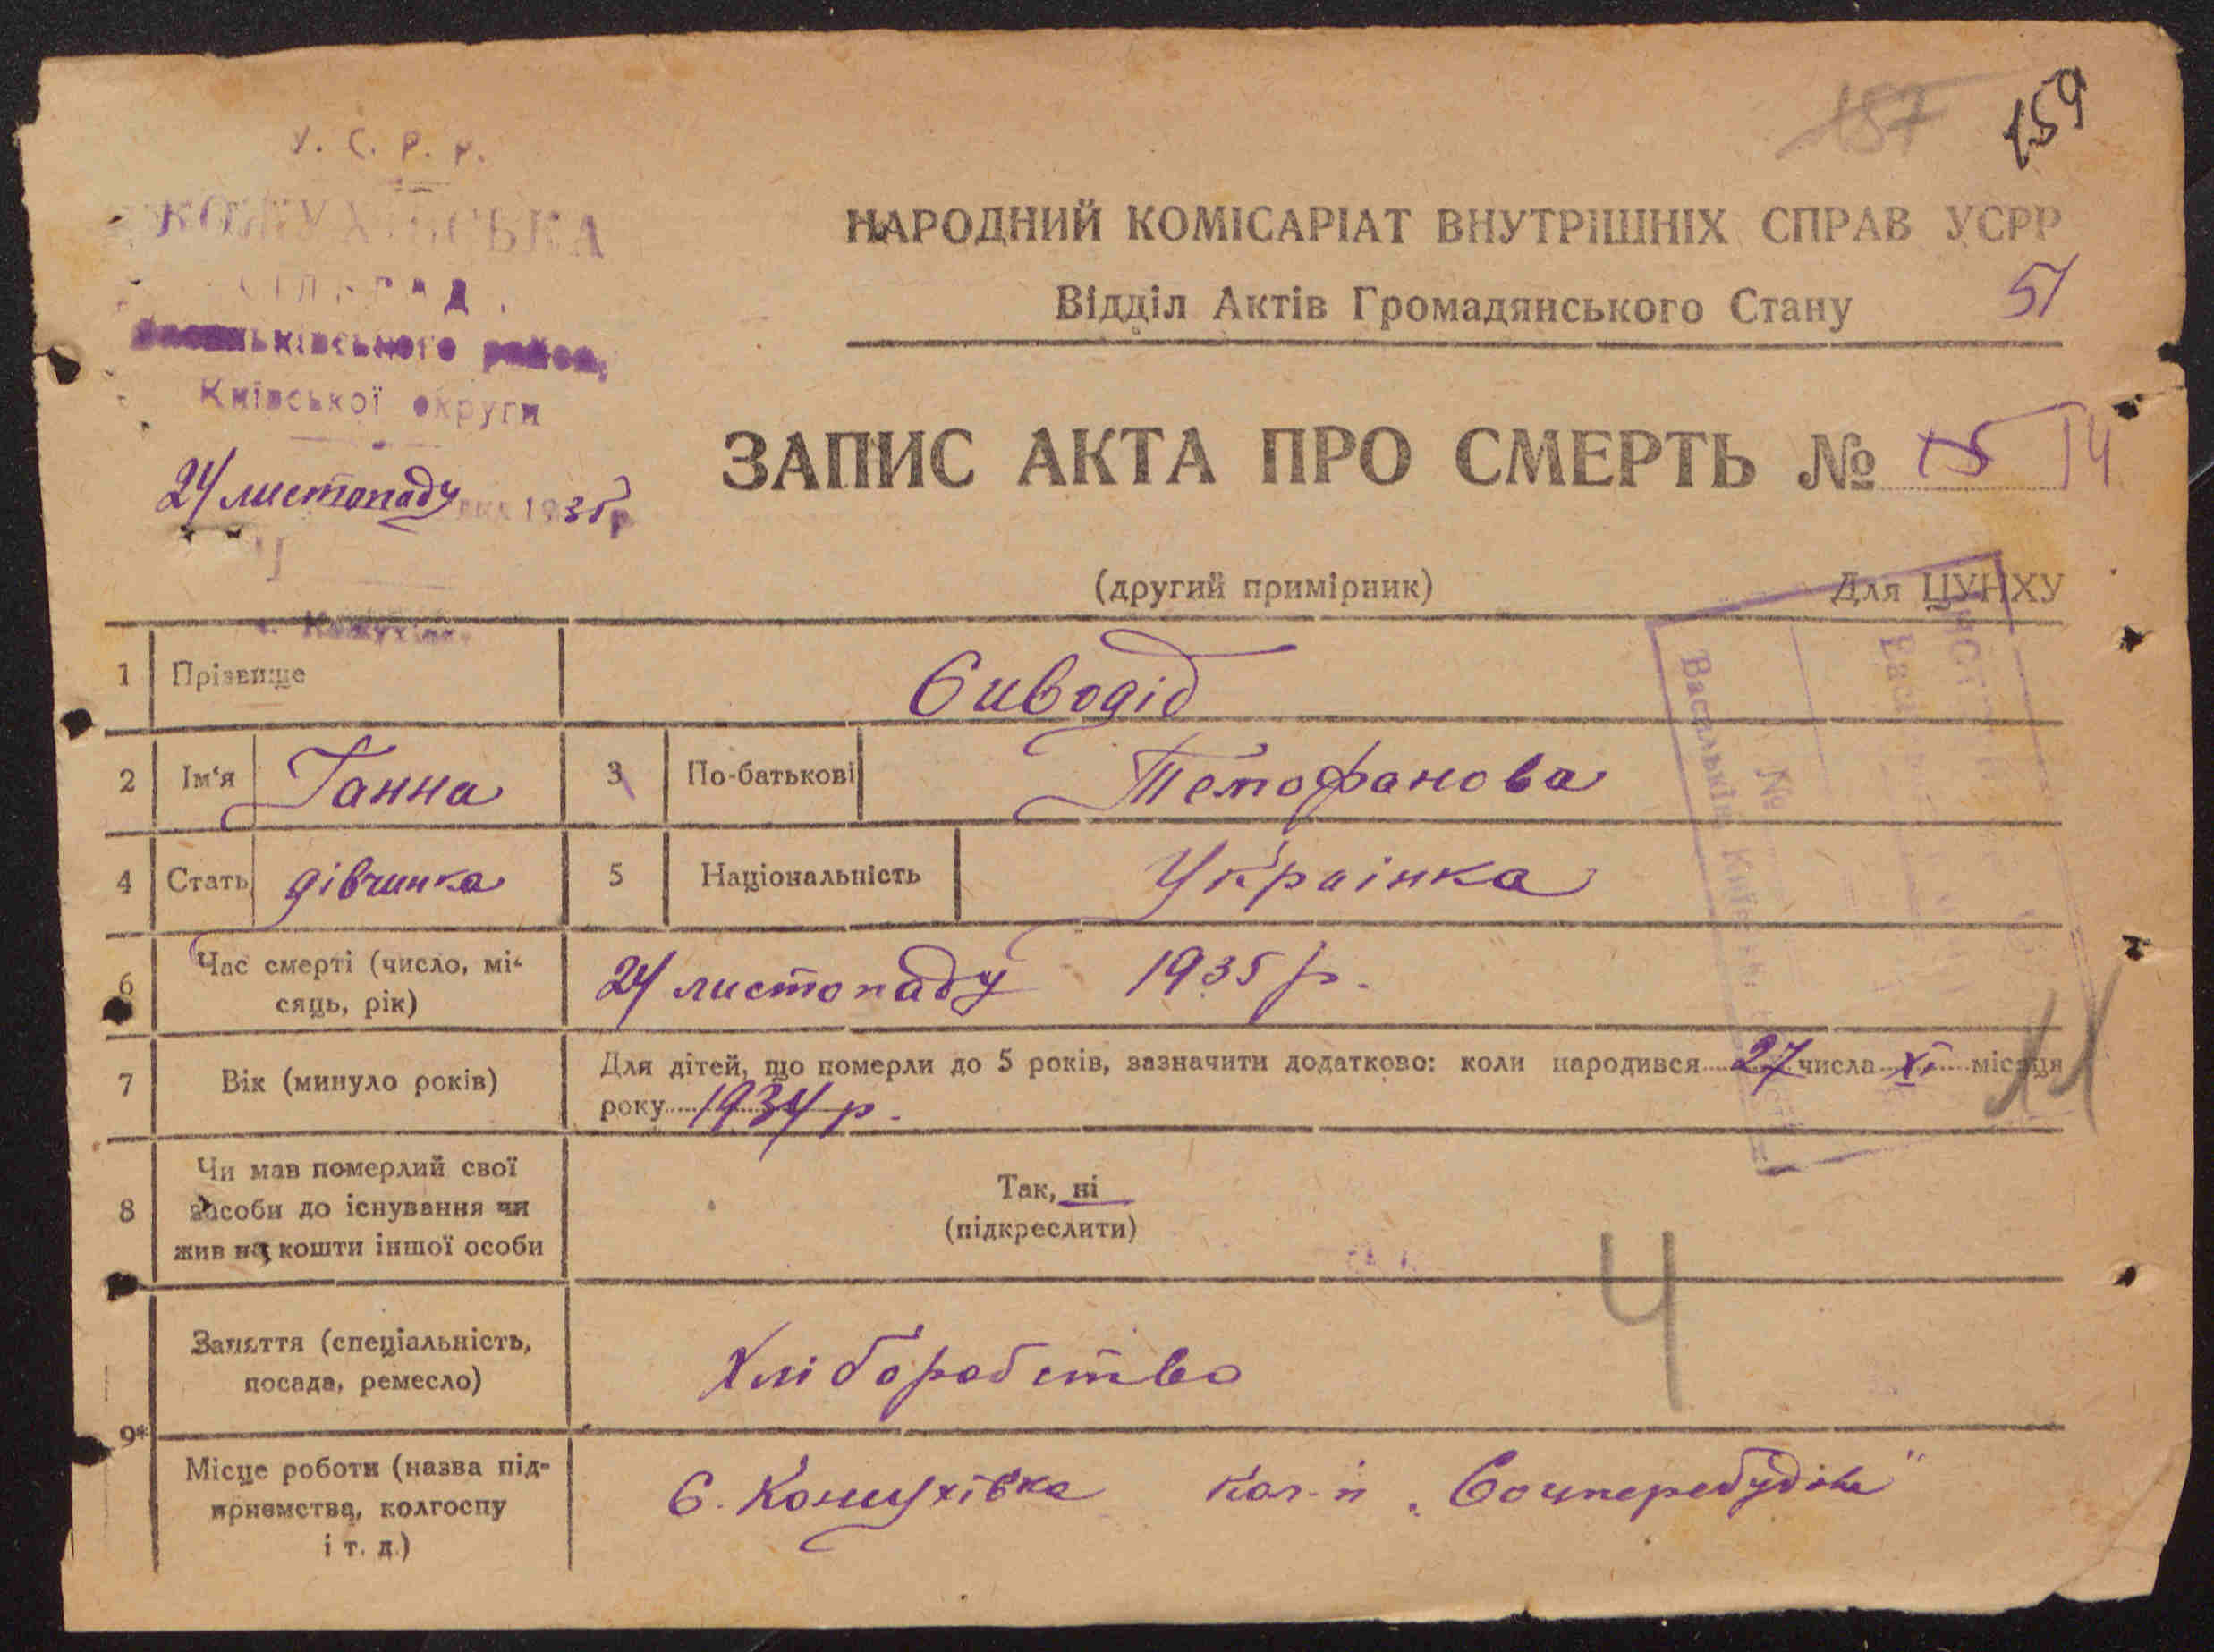 157 159
У. С. Р. Р.
КОЖУХІВСЬКА
СІЛЬРАДА
Васильківського району
Київської округи
24 листопаду 1935 р.
с. Кожухівка
НАРОДНИЙ КОМІСАРІАТ ВНУТРІШНІХ СПРАВ УСРР
Відділ Актів Громадянського Стану 51
ЗАПИС АКТА ПРО СМЕРТЬ № 15 14
(другий примірник) Для ЦУНХУ
1 Прізвище Сиводід
2 Ім'я Ганна 3 По-батькові Теофанова
4 Стать дівчинка 5 Національність Українка
6 Час смерті (число, мі-
сяць, рік) 24 листопаду 1935 р.
7 Вік (минуло років) Для дітей, що померли до 5 років, зазначити додатково: коли народився 27 числа XI місяця
року 1934 р.
11
8 Чи мав померлий свої
засоби до існування чи
жив на кошти іншої особи
Так, ні
(підкреслити)
4
9* Заняття (спеціальність,
посада, ремесло) Хліборобство
Місце роботи (назва під-
приємства, колгоспу
і т. д.) С. Кожухівка кол-п „Соцперебудова"